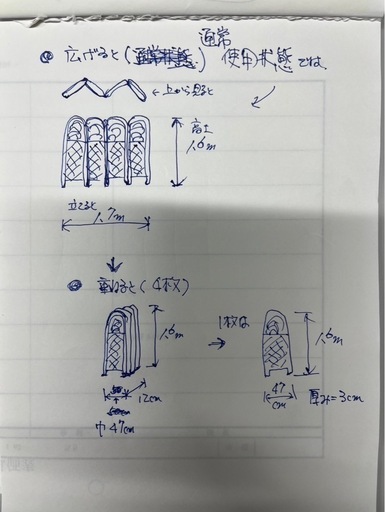 通常
◎ 広げると(通常状態) 使用状態では、
←上から見ると
高さ
1.6m
立てると
1.7m
◎ 重ねると(4枚)
1.6m
12cm
巾47cm
⇒ 1枚は
1.6m
47
cm
厚み=3cm